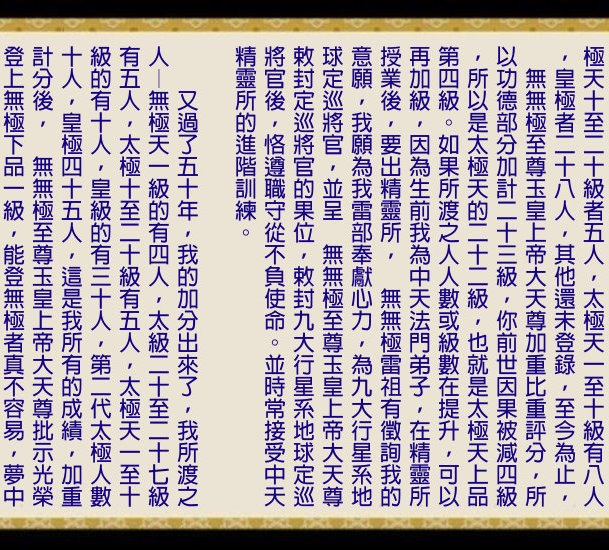 極天十至二十級者五人，太極天一至十級有八人
，皇極者二十八人，其他還未登錄，至今為止，
無無極至尊玉皇上帝大天尊加重比重評分，所
以功德部分加計二十三級，你前世因果被減四級
，所以是太極天的二十二級，也就是太極天上品
第四級。如果所渡之人人數或級數在提升，可以
再加級，因為生前我為中天法門弟子，在精靈所
授業後，要出精靈所，　無無極雷祖有徵詢我的
意願，我願為我雷部奉獻心力，為九大行星系地
球定巡將官，並呈　無無極至尊玉皇上帝大天尊
敕封定巡將官的果位，敕封九大行星系地球定巡
將官後，恪遵職守從不負使命。並時常接受中天
精靈所的進階訓練。
又過了五十年，我的加分出來了，我所渡之
人—無極天一級的有四人，太級二十至二十七級
有五人，太極十至二十級有五人，太極天一至十
級的有十人，皇級的有三十人，第二代太極人數
十人，皇極四十五人，這是我所有的成績，加重
計分後，　無無極至尊玉皇上帝大天尊批示光榮
登上無極下品一級，能登無極者真不容易，夢中